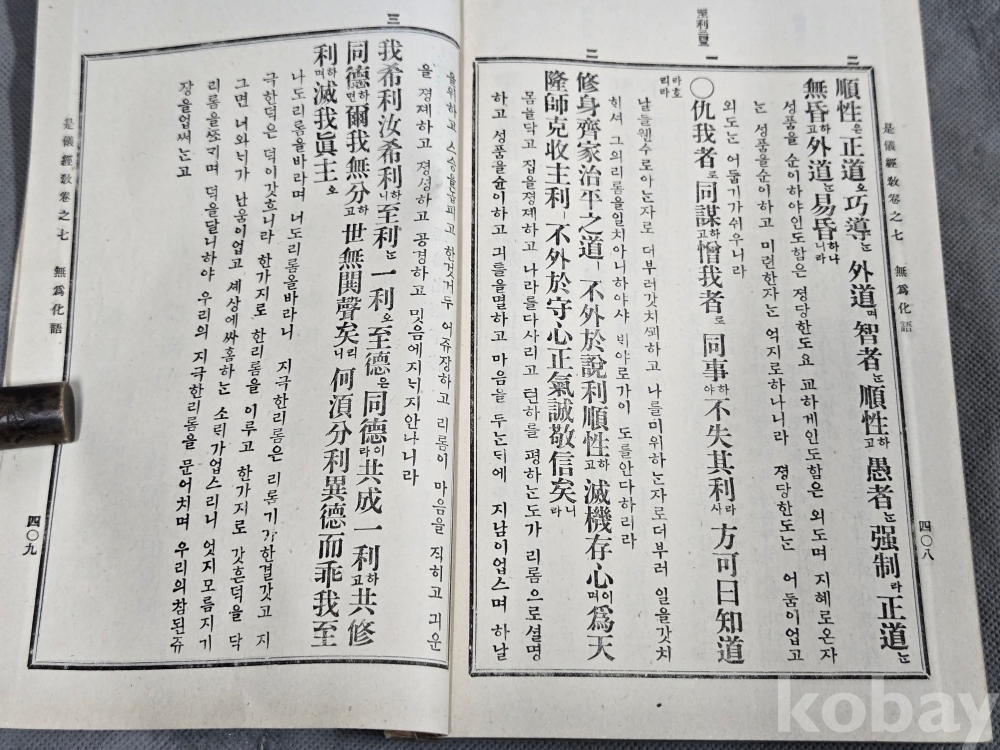 是儀經敎卷之七 無爲化語
四〇八
二
順性은正道오巧導는外道며智者는順性하고愚者는强制라正道는
無昏하고外道는易昏하나니라
성품을 순이하야인도함은 졍당한도요 교하게인도함은 외도며 지혜로온자
는 성품을순이하고 미련한자는 억지로하나니라 졍당한도는 어둠이업고
외도는 어둡기가쉬우니라
至利三章
一
〇仇我者로同謀하고憎我者로同事하야不失其利라사方可曰知道
라호리라
날들웬수로아는자로 더부러갓치꾀하고 나를미위하는자로더부러 일을갓치
히셔 그의리롬을일치아니하야샤 비야로가이 도를안다하리라
二
修身齊家治平之道ㅣ不外於說利順性하고滅機存心이며爲天
隆師克收主利ㅣ不外於守心正氣誠敬信矣니라
몸늘닥고 집을졍제하고 나라를다사리고 텬하를 평하는도가 리롬으로셜명
하고 셩품을슌이하고 긔틀을멸하고 마음을 두는듸에 지남이업스며 하날
을위하고 스승을놉피고 한것거두어쥬장하고 리롬이 마음을 직히고 긔운
을 졍졔하고 졍셩하고 공경하고 밋음에지너지안나니라
三
我希利汝希利하니至利는一利오至德은同德이라共成一利하고共修
同德하면爾我無分하고世無鬨聲矣리니何須分利異德而乖我至
利하며滅我眞主오
나도리롬을바라며 너도리롬을바라니 지극한리롬은 리롬기가한결갓고 지
극한덕은 덕이갓흐니라 한가지로 한리롬을 이루고 한가지로 갓흔덕을 닥
그면 너와닉가 난움이업고 셰상에싸홈하는 소릐가업스리니 엇지모름지기
리롬을쪼기며 덕을달니하야 우리의 지극한리롬을 문어치며 우리의참된쥬
장을업쎄는고
是儀經敎卷之七 無爲化語
四〇九
kobay